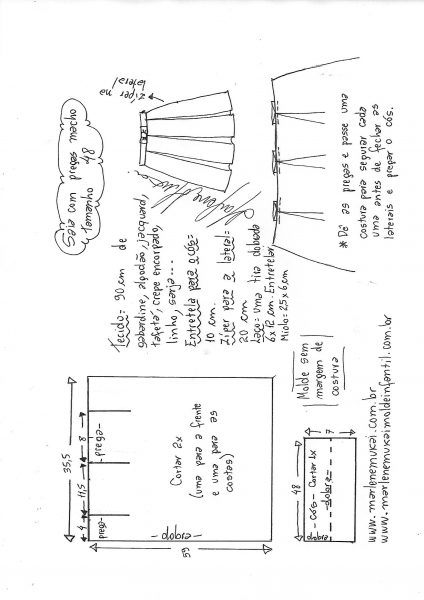 Saia com pregas macho
Tamanho 48
zíper na
lateral
Tecido = 90 cm de
gabardine, algodão, jacquard,
tafetá, crepe encorpado,
linho, sarja...
Entretela para o cós=
10 cm.
Zíper para a lateral=
20 cm
Laço = uma tira dobrada
6 x 12 cm. Entretelar
Miolo: 25 x 6 cm
* Dê as pregas e passe uma
costura para segurar cada
uma antes de fechar as
laterais e pregar o cós.
35,5
4
11,5
8
-prega-
-prega-
Cortar 2x
(uma para a frente
e uma para as
costas)
- dobra -
59
Molde sem
margem de
costura
48
7
- Cós - Cortar 1x
- dobra -
dobra
www.marlenemukai.com.br
www.marlenemukaimoldeinfantil.com.br